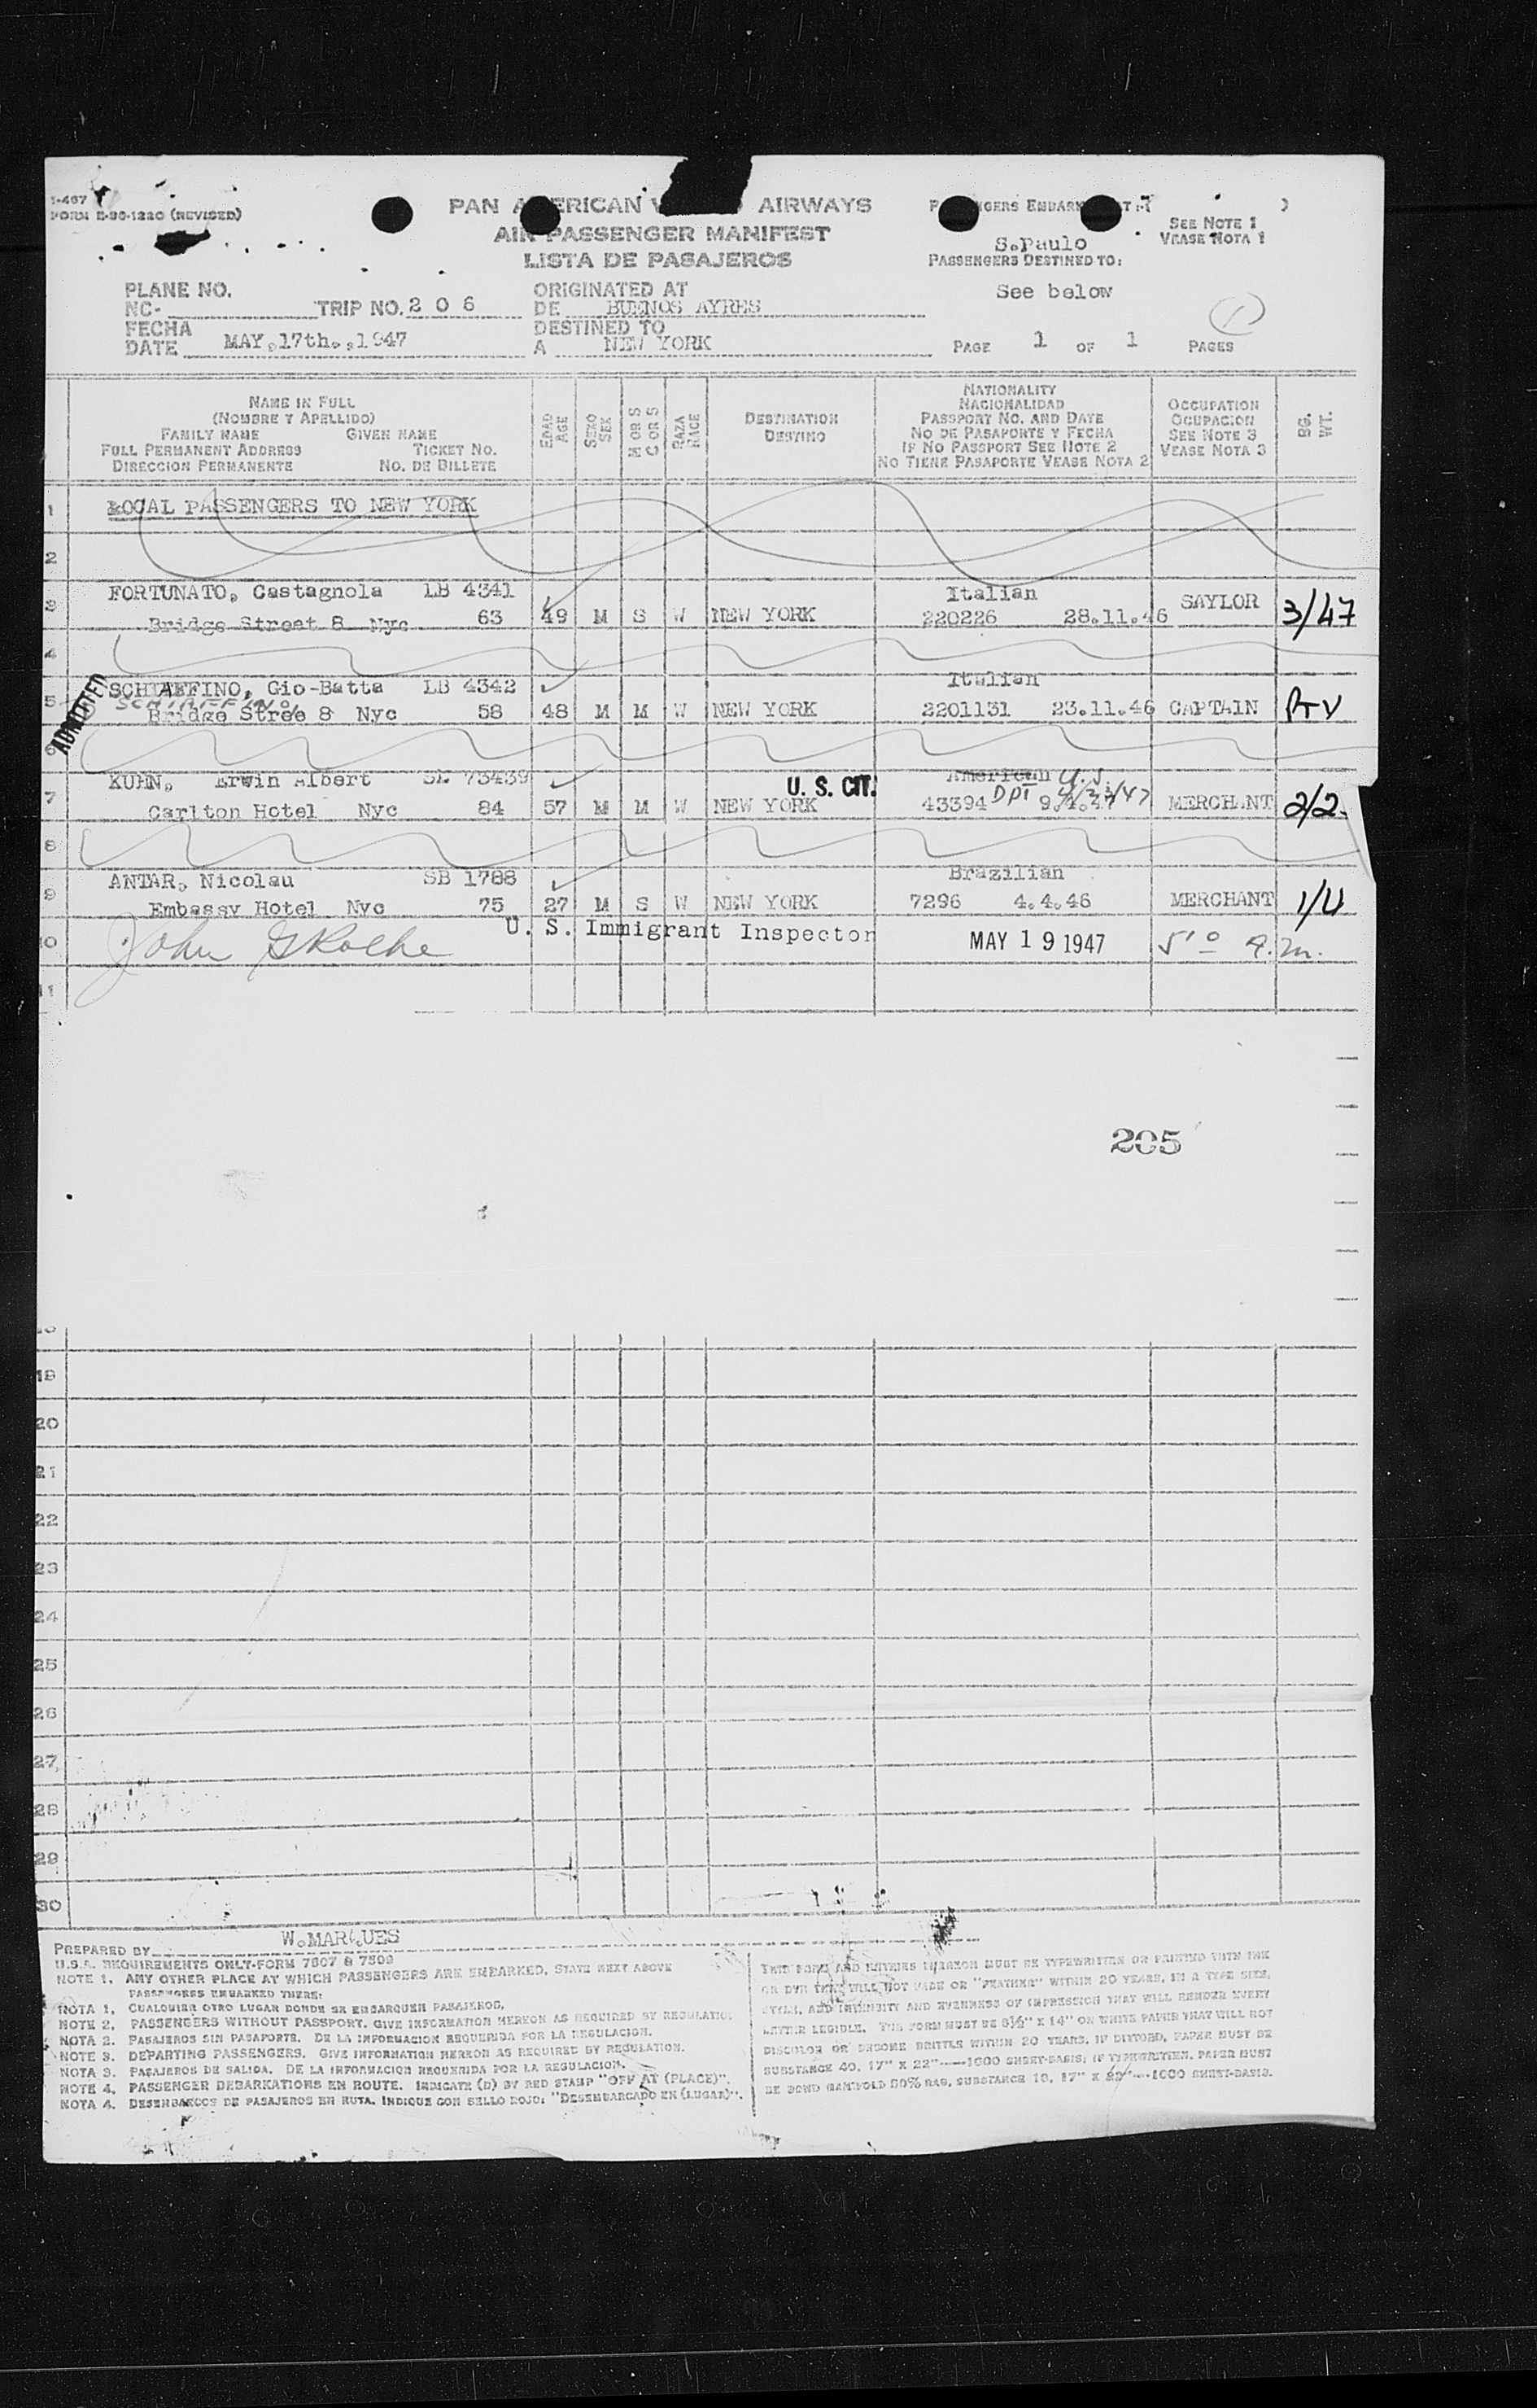 I-467
FORM E-96-1220 (REVISED)
PAN AMERICAN AIRWAYS
AIR PASSENGER MANIFEST
LISTA DE PASAJEROS
PASSENGERS EMBARKED AT
SEE NOTE 1
VEASE NOTA 1
S.Paulo
PASSENGERS DESTINED TO:
See below
PLANE NO.
NC- TRIP NO. 2 0 6
ORIGINATED AT
DE BUENOS AYRES
FECHA
DATE MAY,17th.,1947
DESTINED TO
A NEW YORK
PAGE 1 OF 1 PAGES
1
NAME IN FULL
(NOMBRE Y APELLIDO)
FAMILY NAME GIVEN NAME
FULL PERMANENT ADDRESS TICKET NO.
DIRECCION PERMANENTE NO. DE BILLETE
EDAD
AGE
SEXO
SEX
M OR S
C OR S
RAZA
RACE
DESTINATION
DESTINO
NATIONALITY
NACIONALIDAD
PASSPORT NO. AND DATE
NO DE PASAPORTE Y FECHA
IF NO PASSPORT SEE NOTE 2
NO TIENE PASAPORTE VEASE NOTA 2
OCCUPATION
OCUPACION
SEE NOTE 3
VEASE NOTA 3
BG.
WT.
1 LOCAL PASSENGERS TO NEW YORK
2
FORTUNATO, Castagnola LB 4341 Italian
3 Bridge Street 8 Nyc 63 49 M S W NEW YORK 220226 28.11.46 SAYLOR 3/47
4
SCHIAFFINO, Gio-Batta LB 4342 Italian
SCHIAFFINO
5 Bridge Stree 8 Nyc 58 48 M M W NEW YORK 2201131 23.11.46 CAPTAIN
ADMITTED
6
KUHN, Erwin Albert 73439 U. S. CIT. American U.S.
7 Carlton Hotel Nyc 84 57 M M W NEW YORK 43394 9.4.47 MERCHANT 2/2
8
ANTAR, Nicolau SB 1788 Brazilian
9 Embassy Hotel Nyc 75 27 M S W NEW YORK 7296 4.4.46 MERCHANT
U. S. Immigrant Inspector
10 John MAY 19 1947 A.M.
11
205
19
20
21
22
23
24
25
26
27
28
29
30
PREPARED BY W.MARQUES
U.S.A. REQUIREMENTS ONLY-FORM 7507 & 7509
NOTE 1. ANY OTHER PLACE AT WHICH PASSENGERS ARE EMBARKED, STATE NEXT ABOVE
PASSENGERS EMBARKED THERE:
NOTA 1. CUALQUIER OTRO LUGAR DONDE SE EMBARQUEN PASAJEROS.
NOTE 2. PASSENGERS WITHOUT PASSPORT. GIVE INFORMATION HEREON AS REQUIRED BY REGULATION
NOTA 2. PASAJEROS SIN PASAPORTE. DE LA INFORMACION REQUERIDA POR LA REGULACION.
NOTE 3. DEPARTING PASSENGERS. GIVE INFORMATION HEREON AS REQUIRED BY REGULATION.
NOTA 3. PASAJEROS DE SALIDA. DE LA INFORMACION REQUERIDA POR LA REGULACION.
NOTE 4. PASSENGER DEBARKATIONS EN ROUTE. INDICATE (D) BY RED STAMP "OFF AT (PLACE)".
NOTA 4. DESEMBARCOS DE PASAJEROS EN RUTA. INDIQUE CON SELLO ROJO: "DESEMBARCADO EN (LUGAR)".
THIS FORM AND ENTRIES THEREON MUST BE TYPEWRITTEN OR PRINTED WITH INK
OR DYE THAT WILL NOT FADE OR "FEATHER" WITHIN 20 YEARS, IN A TYPE SIZE,
STYLE, AND INTENSITY AND EVENNESS OF IMPRESSION THAT WILL RENDER EVERY
LETTER LEGIBLE. THE FORM MUST BE 8½" X 14" ON WHITE PAPER THAT WILL NOT
DISCOLOR OR BECOME BRITTLE WITHIN 20 YEARS. IF DITTOED, PAPER MUST BE
SUBSTANCE 40, 17" X 22"—1000 SHEET-BASIS; IF TYPEWRITTEN, PAPER MUST
BE BOND MANIFOLD 50% RAG, SUBSTANCE 18, 17" X 22"—1000 SHEET-BASIS.